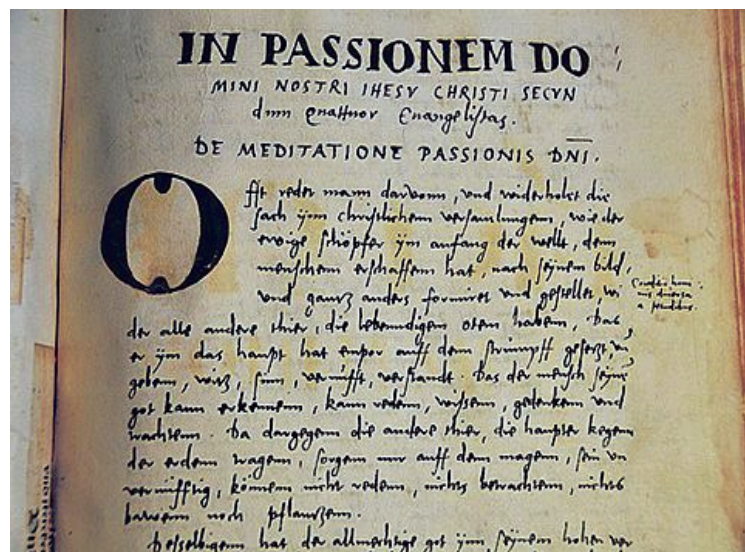 IN PASSIONEM DO
MINI NOSTRI IHESV CHRISTI SECVN
dum Quattuor Euangelistas.
DE MEDITATIONE PASSIONIS DNI.
Offt redet mann darvonn, vnd widerholet die
sach ynn christlichenn versamlungenn, wie der
ewige schöpfer ym anfang der wellt, denn
menschenn erschaffenn hat, nach seynem bild,
vnd gantz anders formiret vnd gestellet, wi
der alle andere thier, die lebenndigenn otem habenn, Das
er ym das haupt hat enpor auff denn strumpff gesetzt,
gebenn, witz, sinn, vernufft, verstandt. Das der mensch
got kann erkennenn, kann redenn, wissenn, gedenckenn vnd
trachtenn. Da dargegenn die andere thier, die haupter kegenn
der erdenn tragenn, sorgenn nur auff denn magenn, sein vn
vernifftig, könnenn nicht redenn, nichts betrachtenn, nichts
bawenn noch pflantzenn.
Desselbigenn hat der allmechtige got ynn seynem hohen